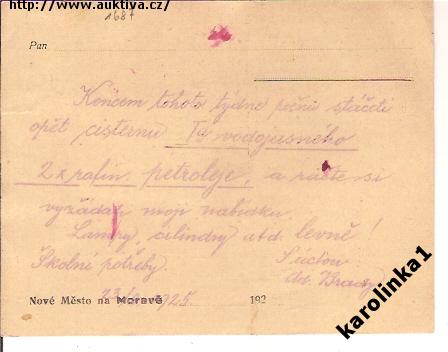 zdroj: www.auktiva.cz/
1687
Pan
Koncem tohoto týdne počnu stáčeti
opět cisternu Ia vodojasného
2 x rafin. petroleje, a račte si
vyžádati moji nabídku.
Lampy, cilindry atd. levně!
Školní potřeby. S úctou
Ad. Brady
Nové Město na Moravě 1925 192
karolinka1